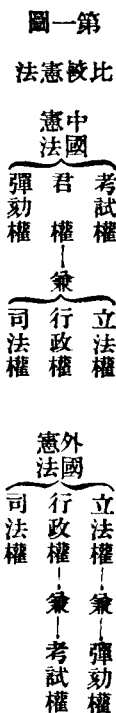 第一圖
比較憲法
中國
憲法
考試權
君權
兼
立法權
行政權
司法權
彈劾權
外國
憲法
立法權
兼
彈劾權
行政權
兼
考試權
司法權